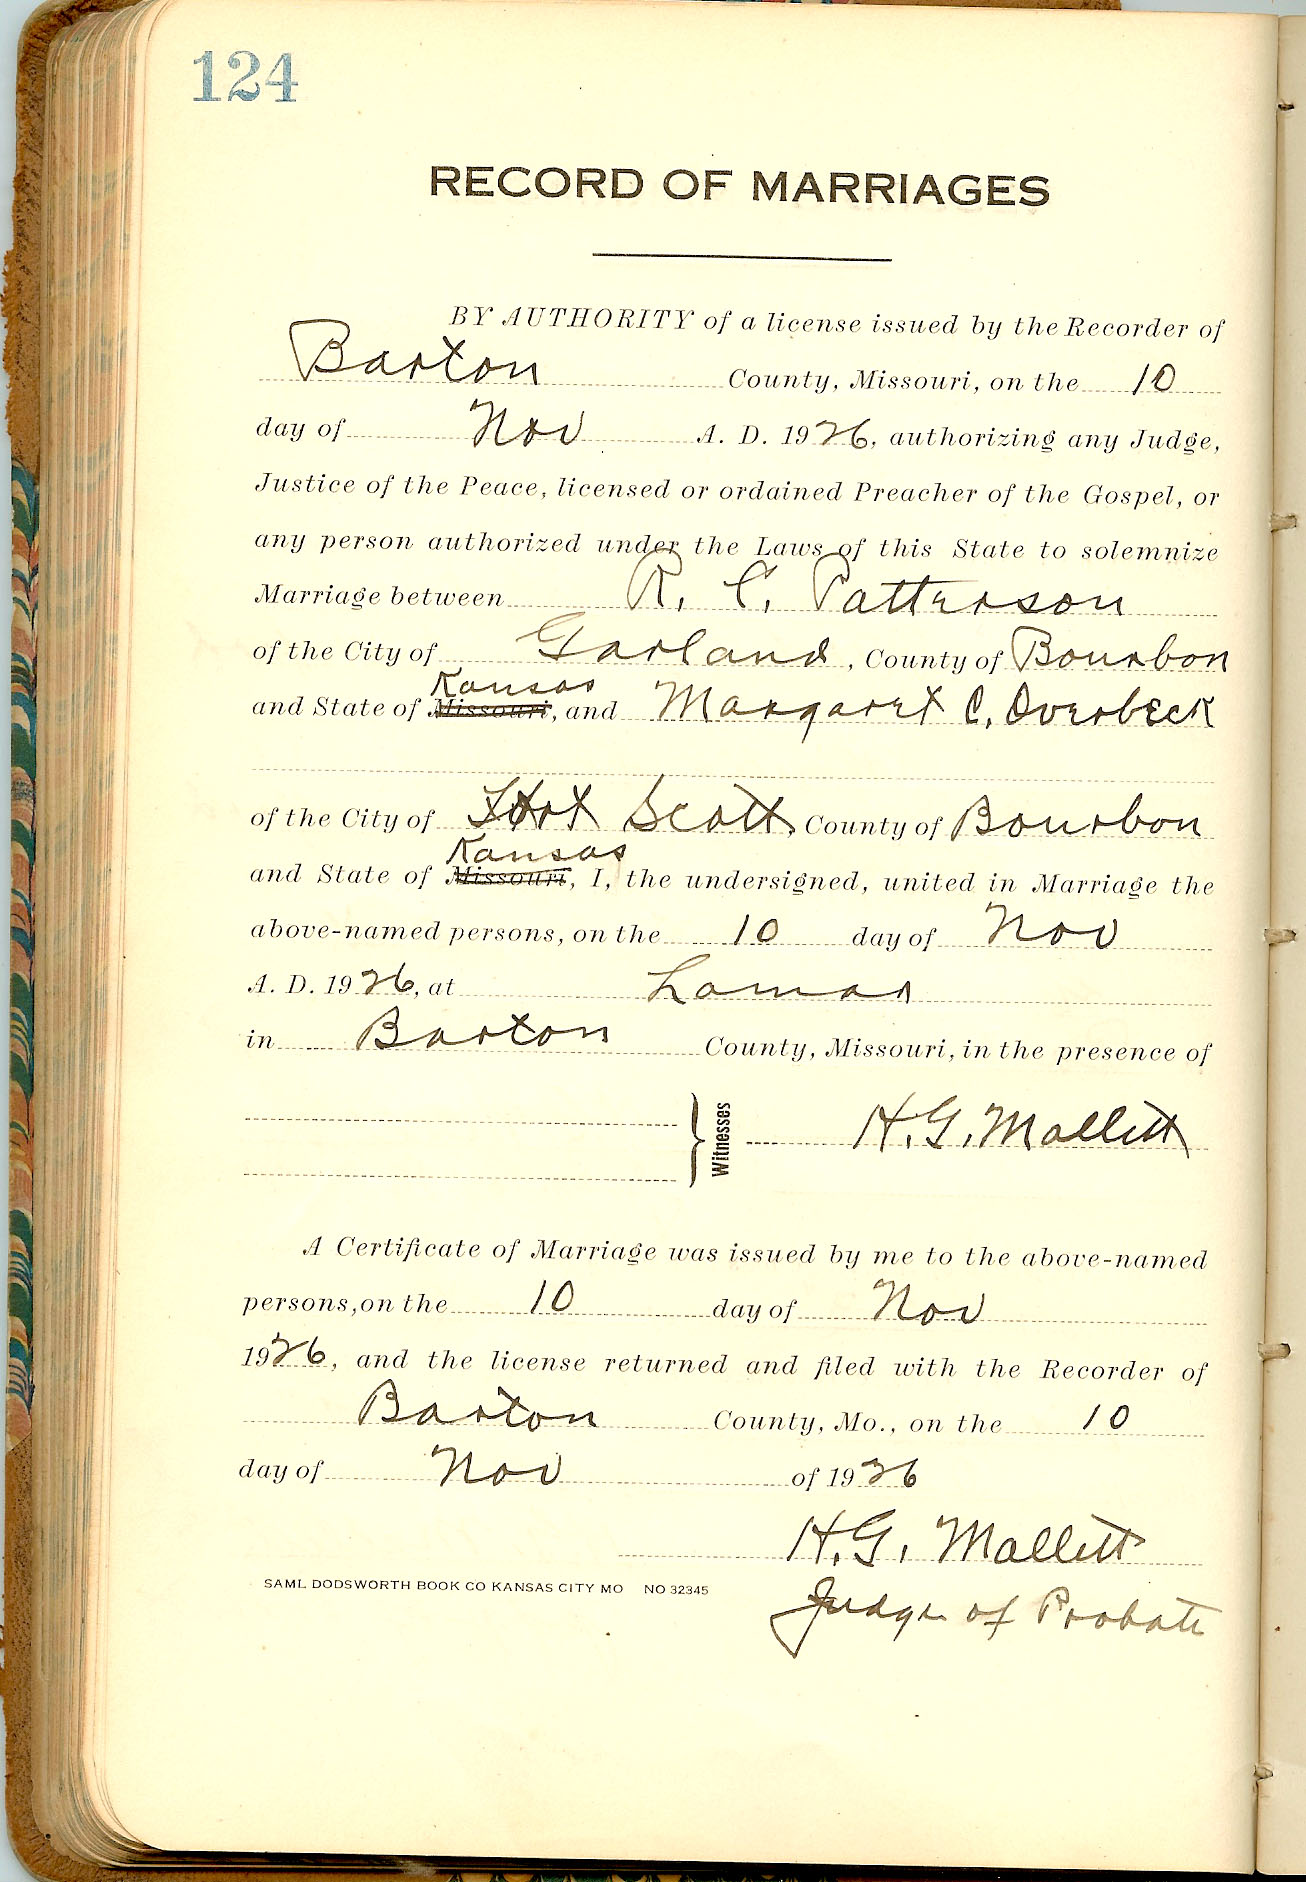 124
RECORD OF MARRIAGES
BY AUTHORITY of a license issued by the Recorder of
Barton County, Missouri, on the 10
day of Nov A. D. 1926, authorizing any Judge,
Justice of the Peace, licensed or ordained Preacher of the Gospel, or
any person authorized under the Laws of this State to solemnize
Marriage between R. C. Patterson
of the City of Garland, County of Bourbon
Kansas
and State of Missouri, and Margaret C. Overbeck
of the City of Fort Scott, County of Bourbon
Kansas
and State of Missouri, I, the undersigned, united in Marriage the
above-named persons, on the 10 day of Nov
A. D. 1926, at Lamar
in Barton County, Missouri, in the presence of
Witnesses H. G. Mallett
A Certificate of Marriage was issued by me to the above-named
persons, on the 10 day of Nov
1926, and the license returned and filed with the Recorder of
Barton County, Mo., on the 10
day of Nov of 1926
H. G. Mallett
SAML DODSWORTH BOOK CO KANSAS CITY MO NO 32345
Judge of Probate